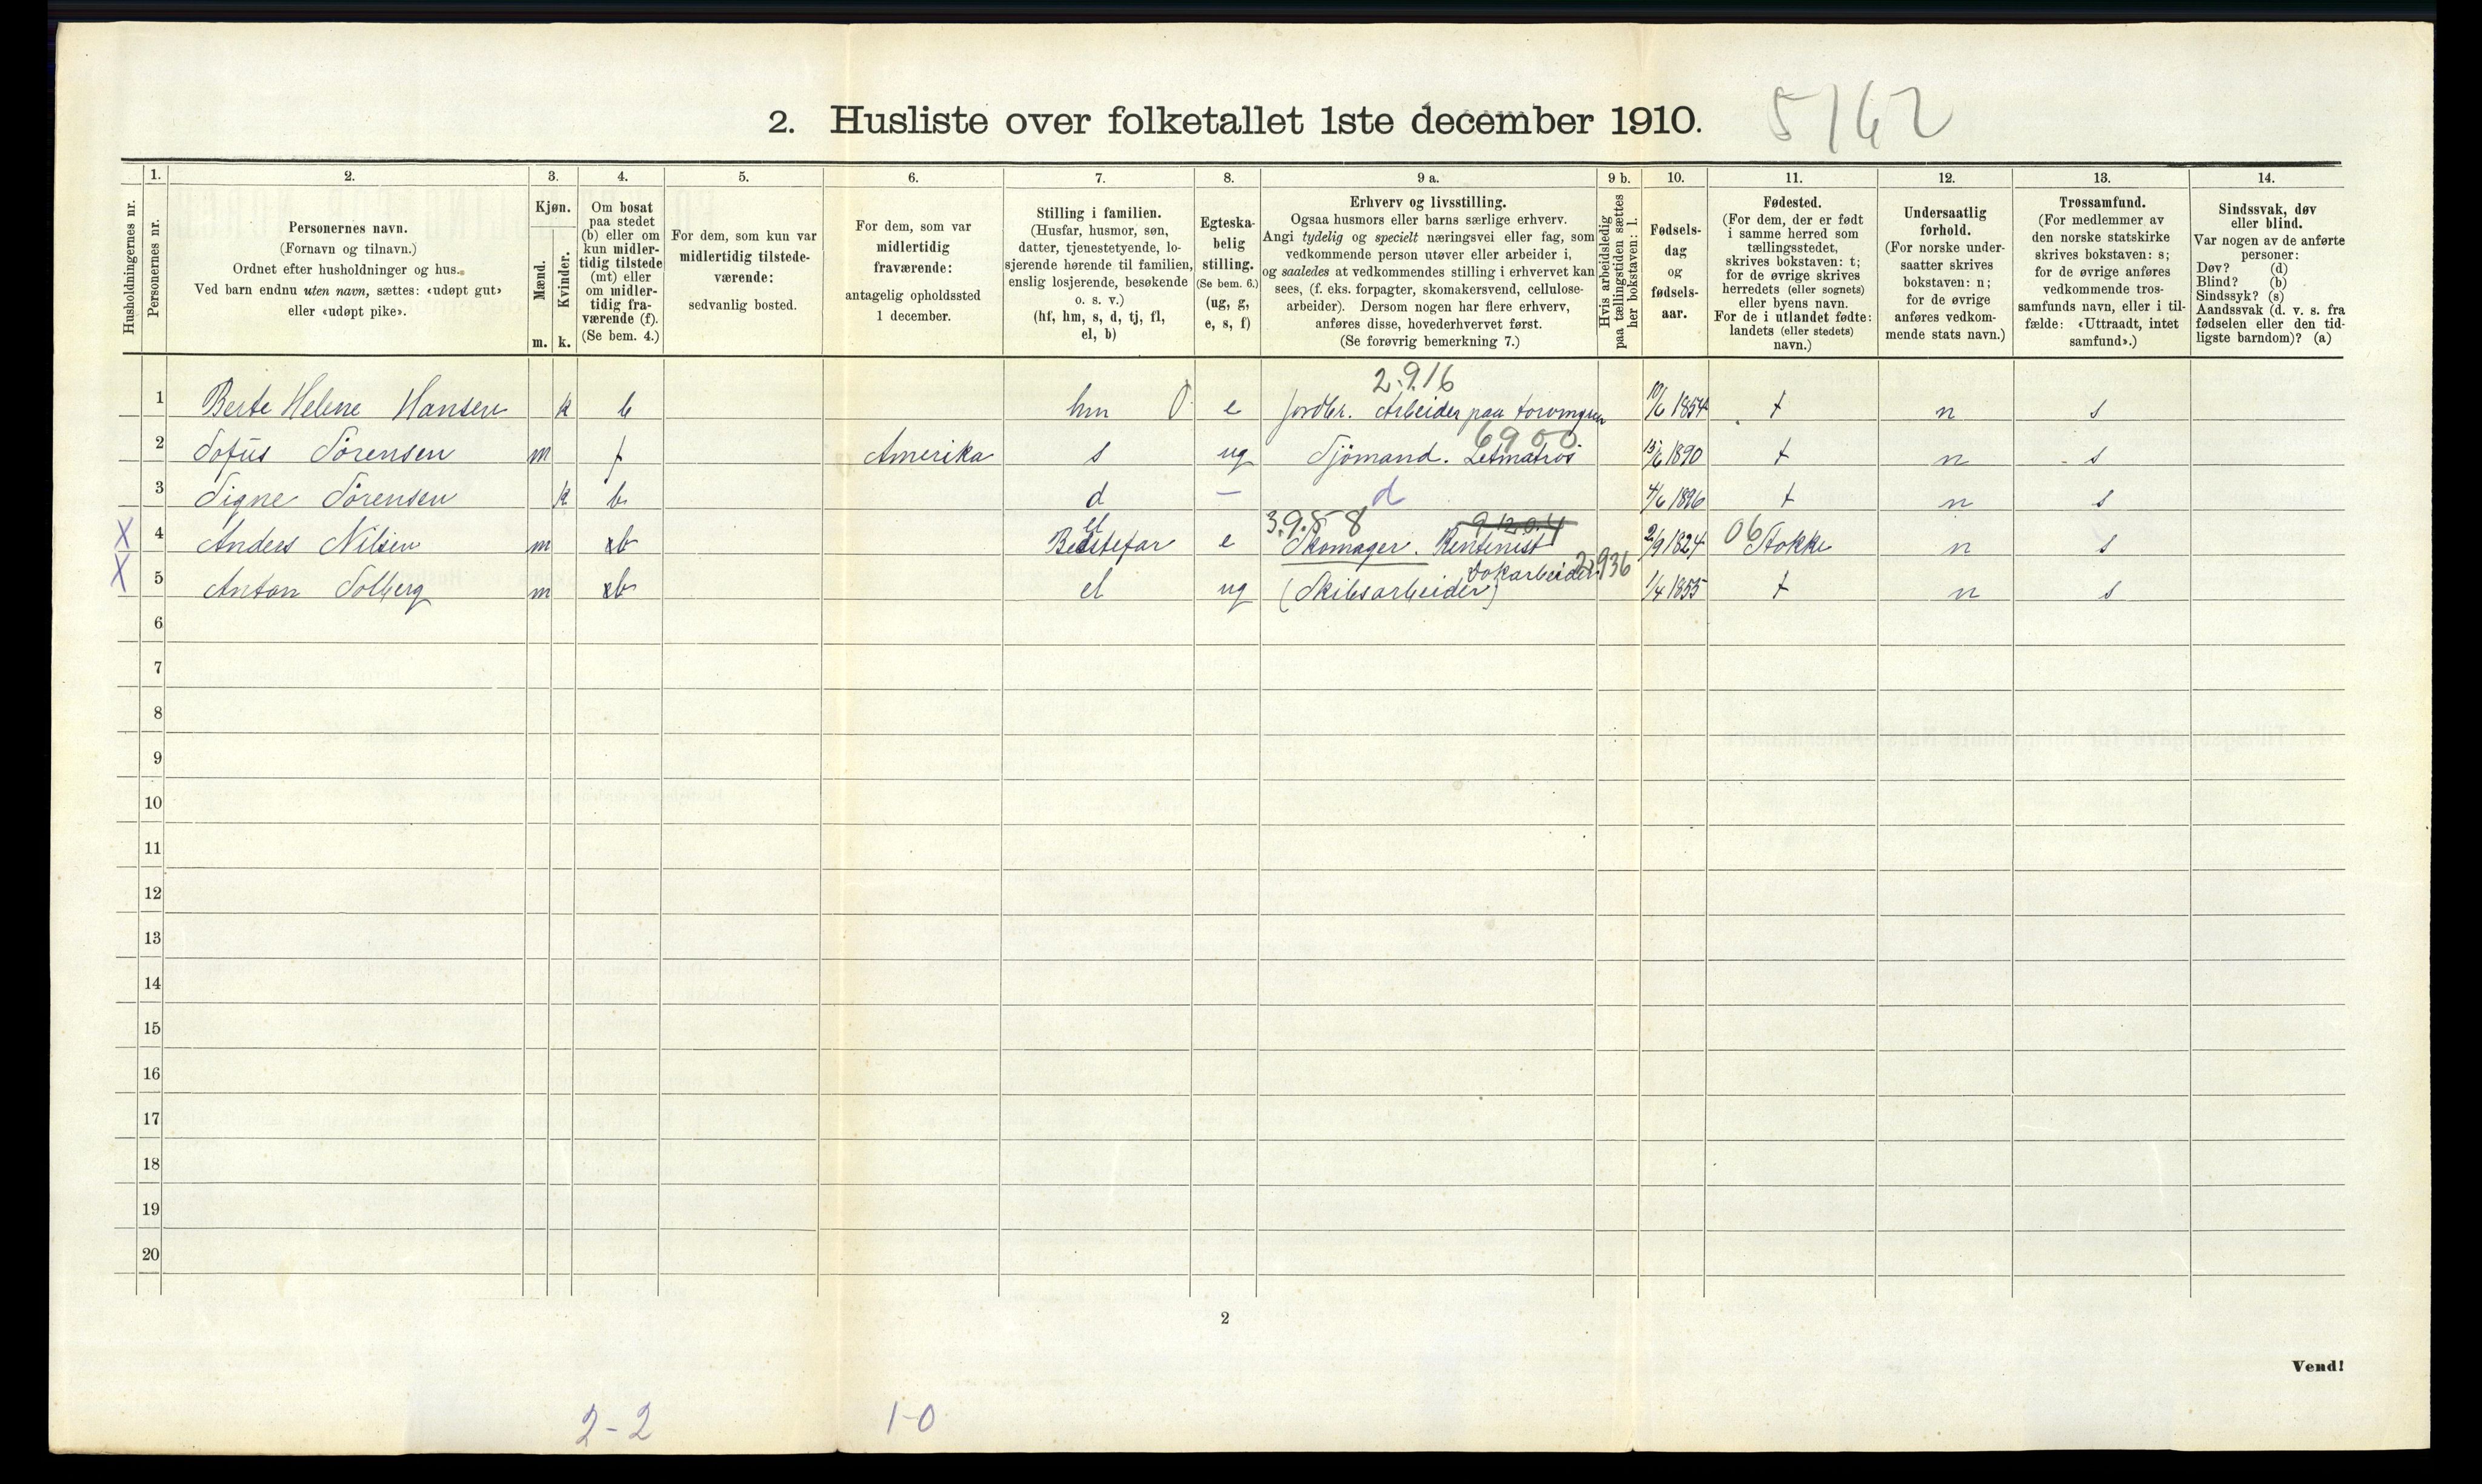 2. Husliste over folketallet 1ste december 1910. 5162
Husholdningernes nr.
1.
Personernes nr.
2.
Personernes navn.
(Fornavn og tilnavn.)
Ordnet efter husholdninger og hus.
Ved barn endnu uten navn, sættes: «udøpt gut»
eller «udøpt pike».
3.
Kjøn.
Mænd.
Kvinder.
m. k.
4.
Om bosat
paa stedet
(b) eller om
kun midler-
tidig tilstede
(mt) eller
om midler-
tidig fra-
værende (f).
(Se bem. 4.)
5.
For dem, som kun var
midlertidig tilstede-
værende:
sedvanlig bosted.
6.
For dem, som var
midlertidig
fraværende:
antagelig opholdssted
1 december.
7.
Stilling i familien.
(Husfar, husmor, søn,
datter, tjenestetyende, lo-
sjerende hørende til familien,
enslig losjerende, besøkende
o. s. v.)
(hf, hm, s, d, tj, fl,
el, b)
8.
Egteska-
belig
stilling.
(Se bem. 6.)
(ug, g,
e, s, f)
9 a.
Erhverv og livsstilling.
Ogsaa husmors eller barns særlige erhverv.
Angi tydelig og specielt næringsvei eller fag, som
vedkommende person utøver eller arbeider i,
og saaledes at vedkommendes stilling i erhvervet kan
sees, (f. eks. forpagter, skomakersvend, cellulose-
arbeider). Dersom nogen har flere erhverv,
anføres disse, hovederhvervet først.
(Se forøvrig bemerkning 7.)
9 b.
Hvis arbeidsledig
paa tællingstiden sættes
her bokstaven: l.
10.
Fødsels-
dag
og
fødsels-
aar.
11.
Fødested.
(For dem, der er født
i samme herred som
tællingsstedet,
skrives bokstaven: t;
for de øvrige skrives
herredets (eller sognets)
eller byens navn.
For de i utlandet fødte:
landets (eller stedets)
navn.)
12.
Undersaatlig
forhold.
(For norske under-
saatter skrives
bokstaven: n;
for de øvrige
anføres vedkom-
mende stats navn.)
13.
Trossamfund.
(For medlemmer av
den norske statskirke
skrives bokstaven: s;
for de øvrige anføres
vedkommende tros-
samfunds navn, eller i til-
fælde: «Uttraadt, intet
samfund».)
14.
Sindssvak, døv
eller blind.
Var nogen av de anførte
personer:
Døv? (d)
Blind? (b)
Sindssyk? (s)
Aandssvak (d. v. s. fra
fødselen eller den tid-
ligste barndom)? (a)
2.9.16
1 Berte Helene Hansen k b hm 0 e Jordbr. Arbeider paa 10/6 1854 t n s
6900
2 Sofus Sörensen m f Amerika s ug Sjömand. Letmatros 15/6 1890 t n s
3 Signe Sörensen k b d - d 4/6 1896 t n s
el 3.9.58 9.12.0.4
X 4 Anders Nilsen m b Bedstefar e Skomager. Rentenist 2/9 1824 06 Stokke n s
Dokarbeider 2.936
X 5 Anton Solberg m b el ug (Skibsarbeider) 1/4 1855 t n s
6
7
8
9
10
11
12
13
14
15
16
17
18
19
20
2
Vend!
2-2 1-0